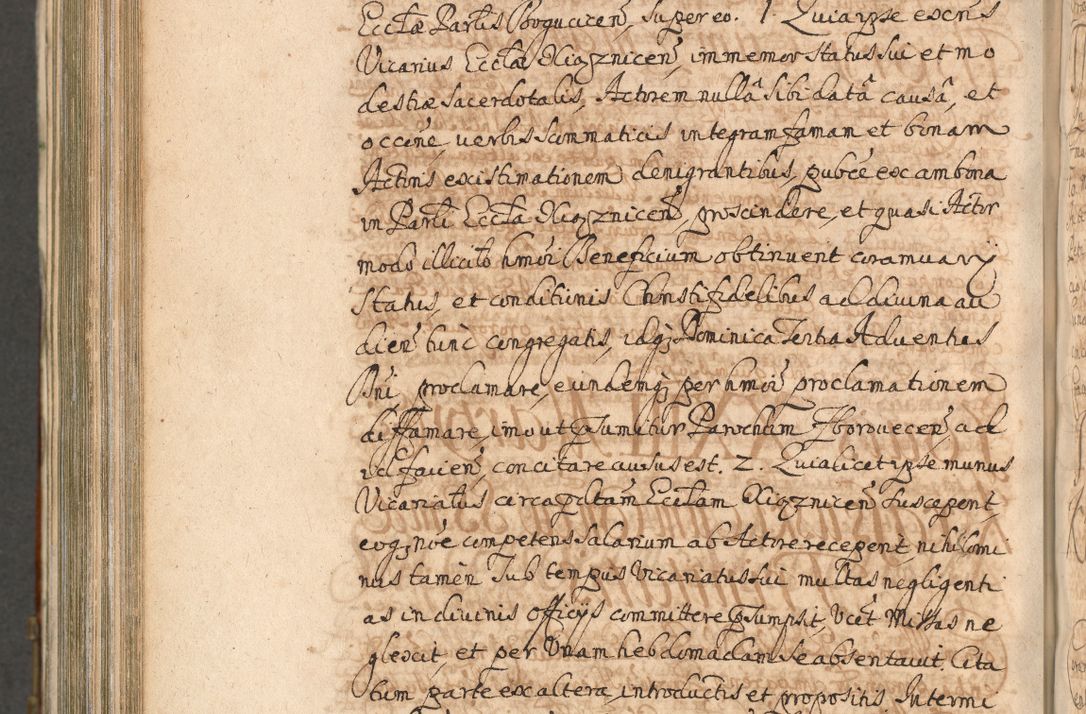 Ecclæ Parlis Bogucicen̄, super eo. 1. Quia ipse exens
Vicarius Eccla Xiąznicen̄, immemor status sui et mo
destiæ sacerdotalis, Actorem nullâ sibi datâ causâ, et
occ͞ne, verbis scommaticis integram famam et bonam
Actoris existimationem denigrantibus, pub͞ce ex ambona
in Parli Eccla Xiąznicen̄, proscindere, et quasi Actor
modo illicito hm͞oi Beneficium obtinuent coram varÿ
status, et conditionis Christi fidelibus ad divina au
dien̄ tunc congregatis, idq; Dominica Tertia Adventus
D͞ni, proclamare, eundemq; per hm͞oi proclamationem
diffamare, imo ut p̄sumitur Parochum Zborovecen̄, ad
id facien̄, concitare ausus est. 2. Quia licet ipse munus
Vicariatus circa p̄ltam Ecclam Xiąznicen̄ susceperit,
eoq; no͞e competens salarium ab Actore receperit, nihilomi
nus tamen sub tempus Vicariatus sui multas negligenti
as in divinis officÿs committere p̄sumpsit, Vcēt Missas ne
glexit, et per Unam hebdomadam se absentavit. Cita
tum parte ex altera, introductis et propositis. Intermi